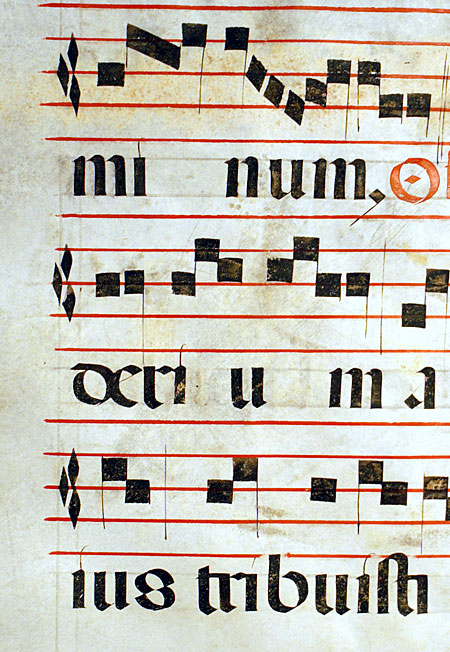 mi num, O
deri u m a
ius tribuisti